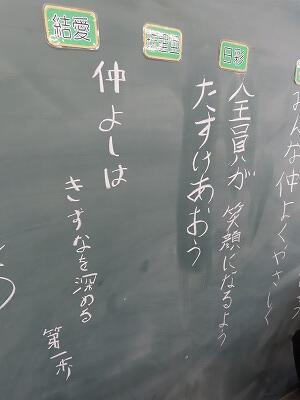 みんな仲よくやさしく
日彩
全員が 笑顔になるよう
たすけあおう
結愛
仲よしは
きずなを深める
第一歩